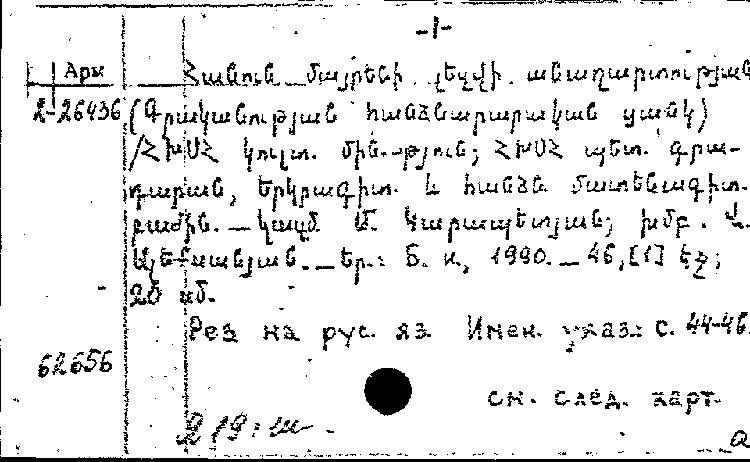 -1-
Арм Հանուն մայրենի լեզվի անաղարտության
2-26436 (Գրականության հանձնարարական ցանկ)
/ՀԽՍՀ կուլտ. մին-թյուն; ՀԽՍՀ պետ. գրա-
դարան, երկրագիտ. և հանձն մատենագիտ.
բաժին. _ կազմ Մ. Կարապետյան; խմբ. Վ.
Ալեքսանյան. _ Եր.: Բ. և., 1990. _ 46,[1] էջ;
20 սմ.
Рез на рус. яз Имен. указ.: с. 44-46.
62656
см. след. карт.